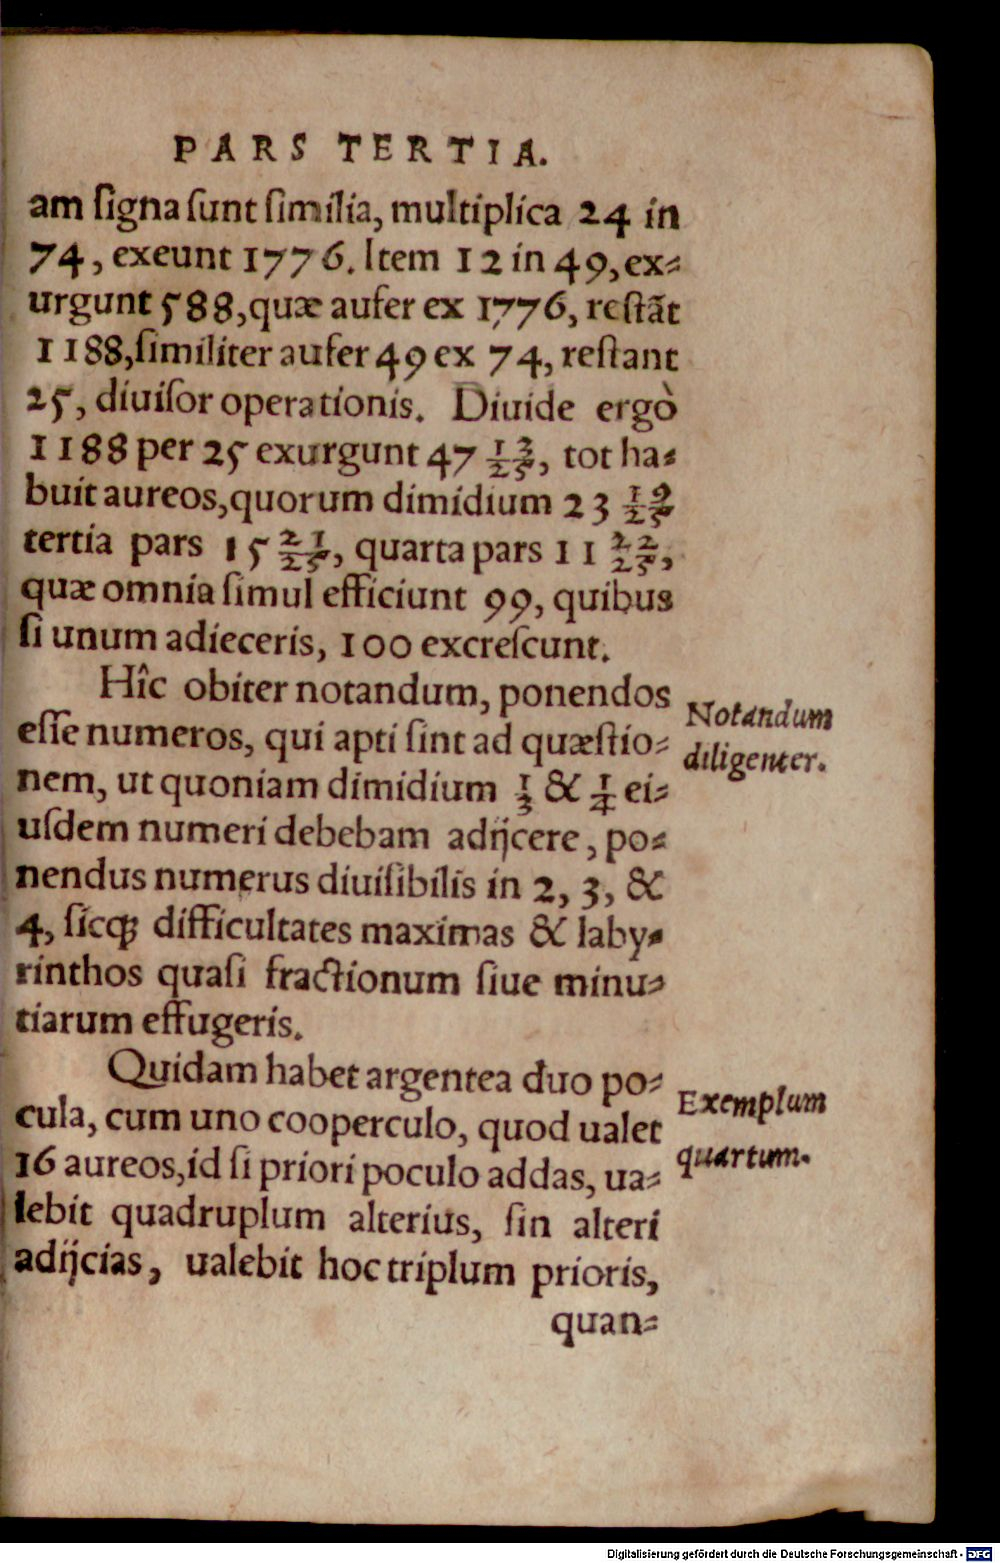 PARS TERTIA.
am ſigna ſunt ſimilia, multiplica 24 in
74, exeunt 1776. Item 12 in 49, ex⸗
urgunt 588, quæ aufer ex 1776, reſtãt
1188, ſimiliter aufer 49 ex 74, reſtant
25, diuiſor operationis. Diuide ergò
1188 per 25 exurgunt 47 13/25, tot ha⸗
buit aureos, quorum dimidium 23 19/25
tertia pars 15 21/25, quarta pars 11 22/25,
quæ omnia ſimul efficiunt 99, quibus
ſi unum adieceris, 100 excreſcunt.
Hîc obiter notandum, ponendos
eſſe numeros, qui apti ſint ad quæſtio⸗
nem, ut quoniam dimidium 1/3 & 1/4 ei⸗
uſdem numeri debebam adijcere, po⸗
nendus numerus diuiſibilis in 2, 3, &
4, ſicq́ꝫ difficultates maximas & laby⸗
rinthos quaſi fractionum ſiue minu⸗
tiarum effugeris.
Notandum
diligenter.
Quidam habet argentea duo po⸗
cula, cum uno cooperculo, quod ualet
16 aureos, id ſi priori poculo addas, ua⸗
lebit quadruplum alterius, ſin alteri
adijcias, ualebit hoc triplum prioris,
quan⸗
Exemplum
quartum.
Digitalisierung gefördert durch die Deutsche Forschungsgemeinschaft - DFG